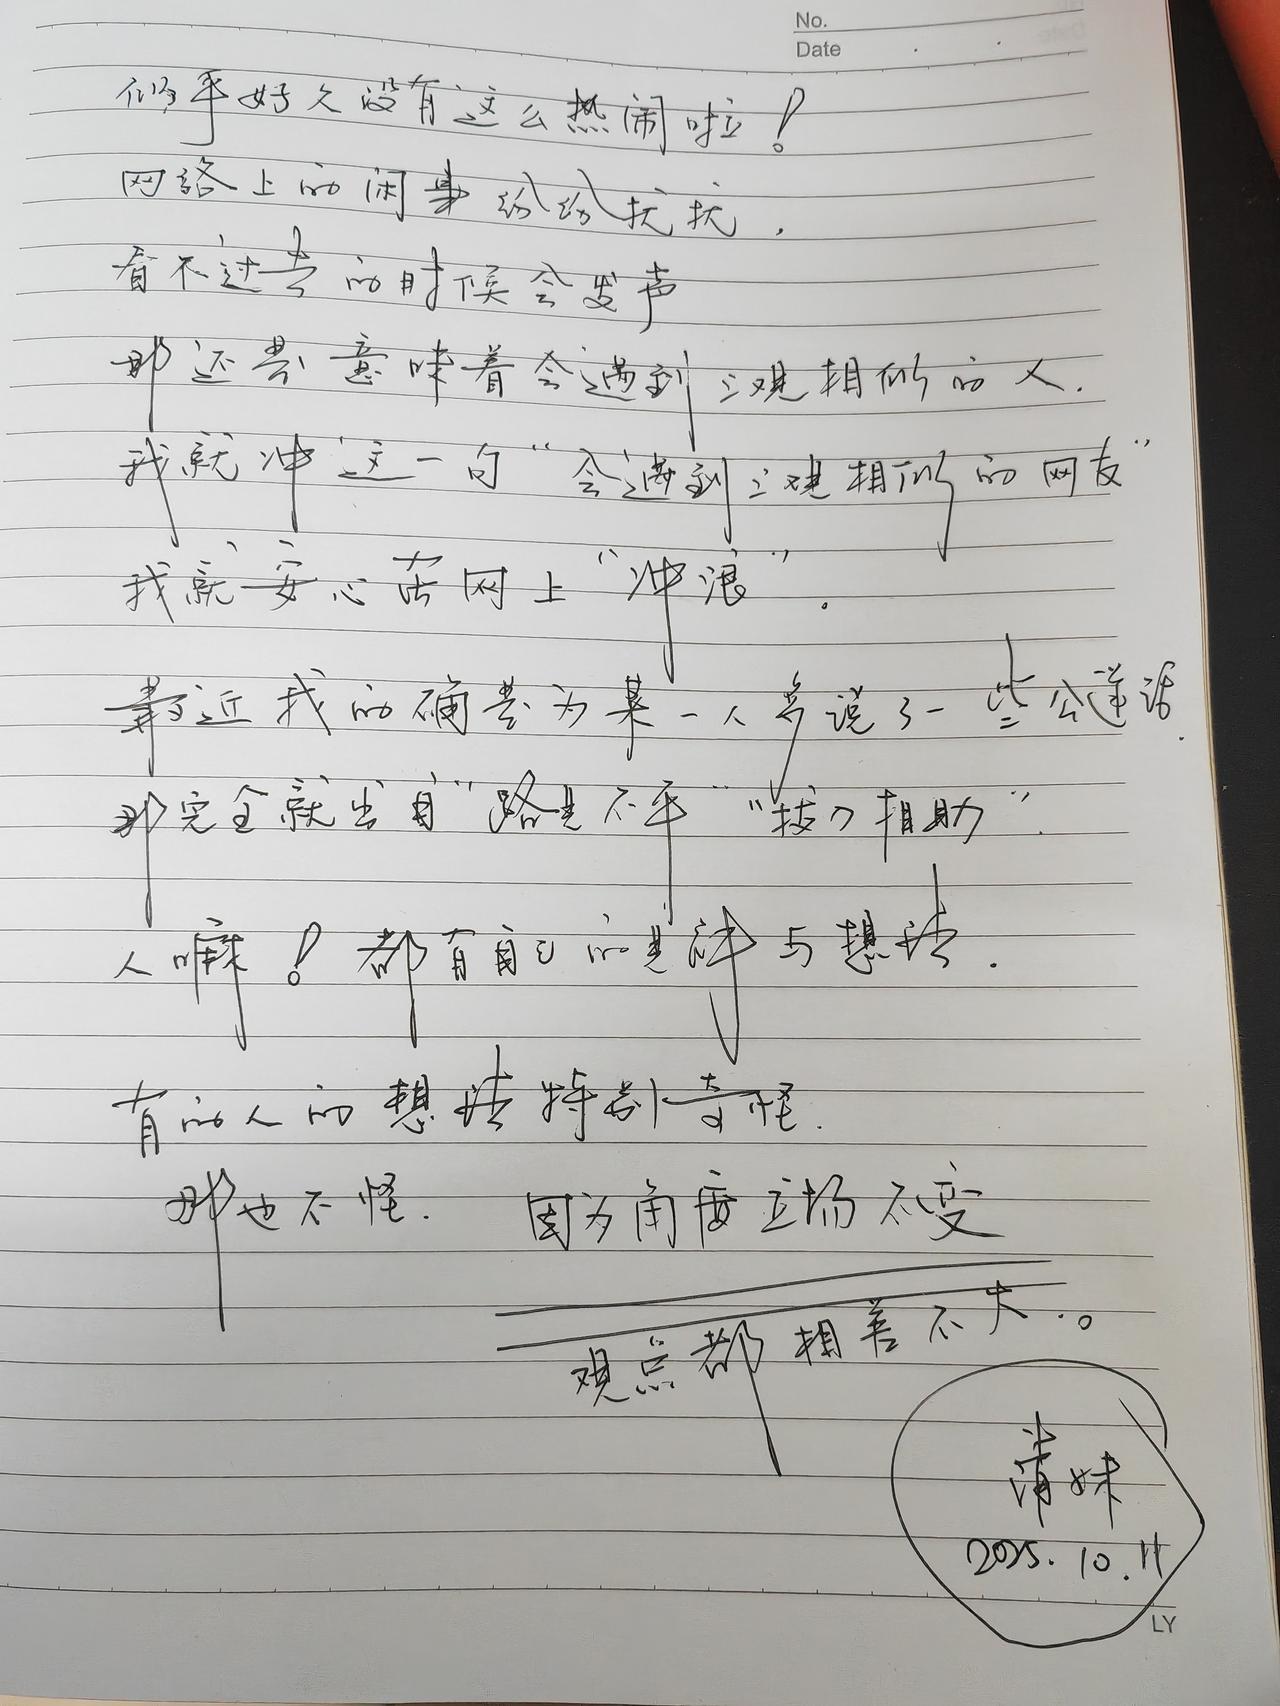 No.
Date
似乎好久没有这么热闹啦！
网络上的闲事纷纷扰扰，
看不过去的时候会发声
那还意味着会遇到三观相似的人.
我就冲这一句“会遇到三观相似的网友”
我就安心在网上“冲浪”.
最近我的确为某一人多说了一些公道话.
那完全就出自“路见不平”“拔刀相助”.
人嘛！都有自己的见解与想法.
有的人的想法特别奇怪.
那也不怪. 因为角度立场不变
观点都相差不大.。
蒲妹
2025.10.11
LY